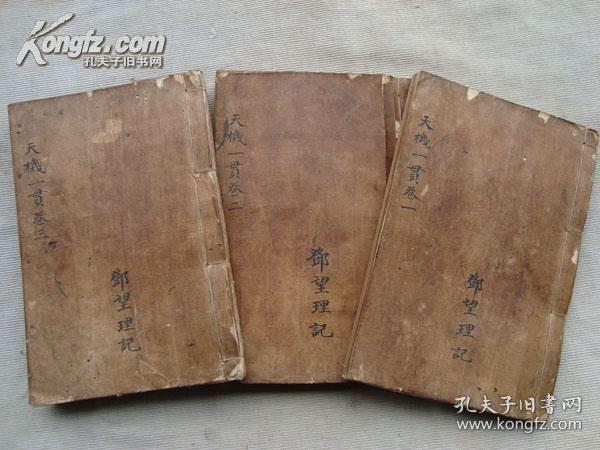 Kongfz.com
孔夫子旧书网
天機一貫卷三
鄧望理記
天機一貫卷二
鄧望理記
天機一貫卷一
鄧望理記
孔夫子旧书网
www.kongfz.com